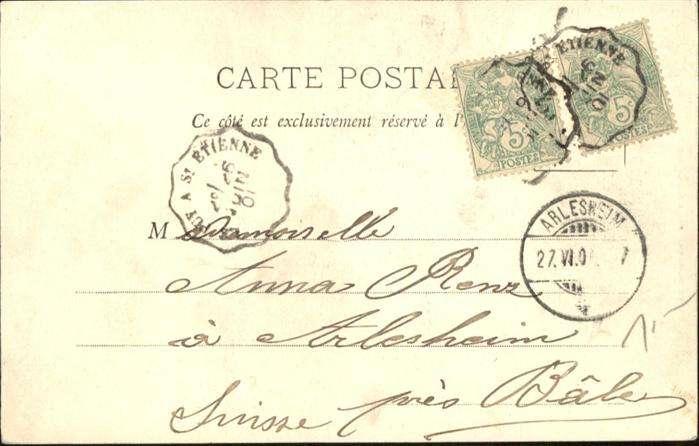 CARTE POSTA
Ce côté est exclusivement réservé à l'
5
POSTES
5
ST ETIENNE
A ST ETIENNE
JUIN
01
ARLESHEIM
27.VI.0
Mademoiselle
Anna Renz
à Arlesheim
Suisse près Bâle